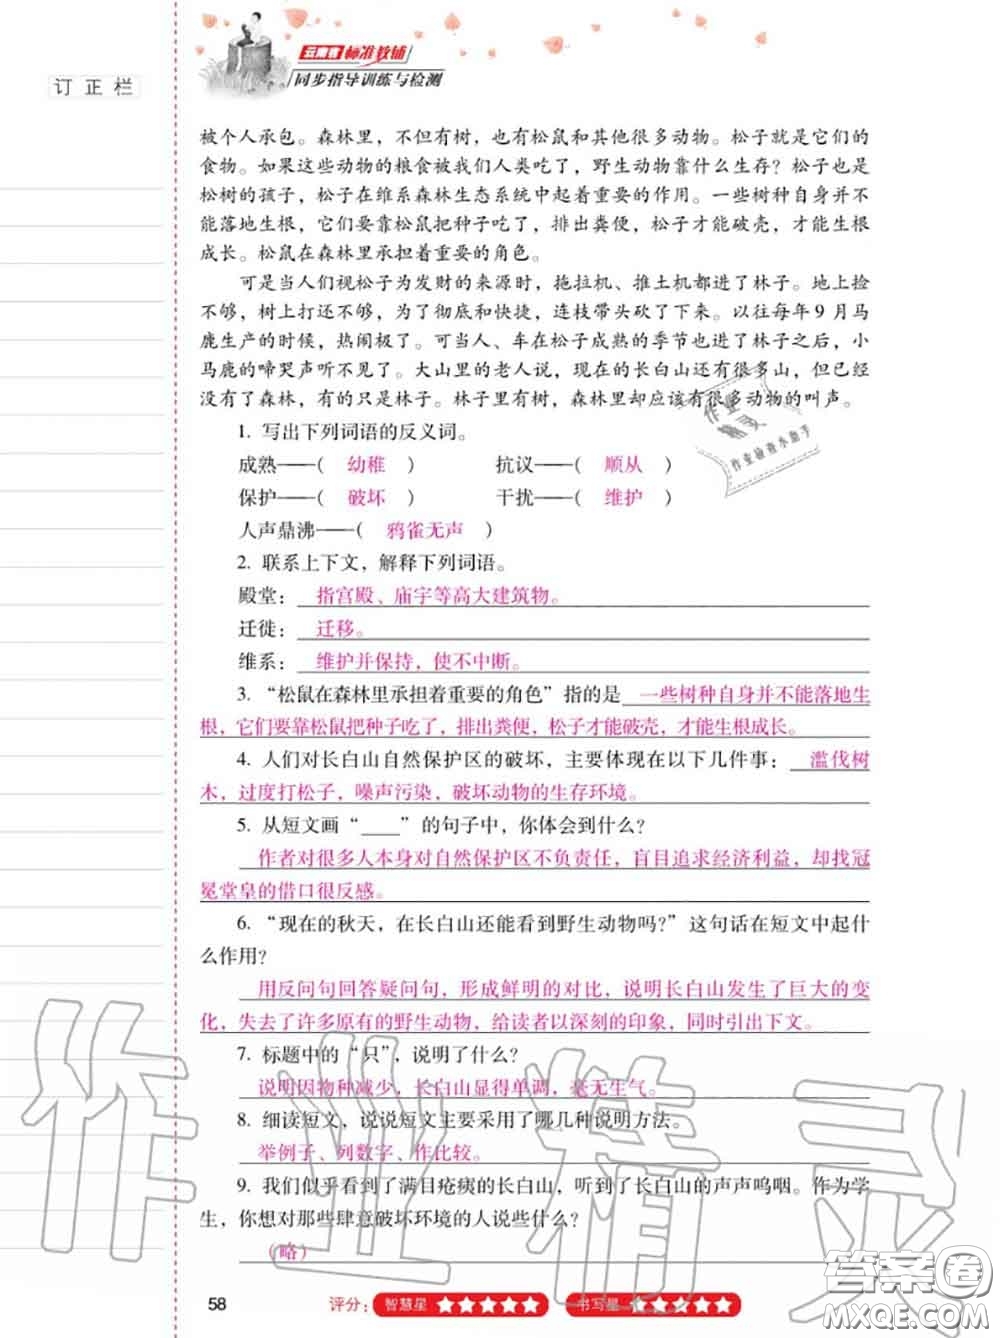 云南省标准教辅
同步指导训练与检测
订正栏
被个人承包。森林里，不但有树，也有松鼠和其他很多动物。松子就是它们的
食物。如果这些动物的粮食被我们人类吃了，野生动物靠什么生存？松子也是
松树的孩子，松子在维系森林生态系统中起着重要的作用。一些树种自身并不
能落地生根，它们要靠松鼠把种子吃了，排出粪便，松子才能破壳，才能生根
成长。松鼠在森林里承担着重要的角色。
可是当人们视松子为发财的来源时，拖拉机、推土机都进了林子。地上捡
不够，树上打还不够，为了彻底和快捷，连枝带头砍了下来。以往每年9月马
鹿生产的时候，热闹极了。可当人、车在松子成熟的季节也进了林子之后，小
马鹿的啼哭声听不见了。大山里的老人说，现在的长白山还有很多山，但已经
没有了森林，有的只是林子。林子里有树，森林里却应该有很多动物的叫声。
1. 写出下列词语的反义词。
成熟——( 幼稚 ) 抗议——( 顺从 )
保护——( 破坏 ) 干扰——( 维护 )
人声鼎沸——( 鸦雀无声 )
2. 联系上下文，解释下列词语。
殿堂： 指宫殿、庙宇等高大建筑物。
迁徙： 迁移。
维系： 维护并保持，使不中断。
3. “松鼠在森林里承担着重要的角色”指的是 一些树种自身并不能落地生
根，它们要靠松鼠把种子吃了，排出粪便，松子才能破壳，才能生根成长。
4. 人们对长白山自然保护区的破坏，主要体现在以下几件事： 滥伐树
木，过度打松子，噪声污染，破坏动物的生存环境。
5. 从短文画“____”的句子中，你体会到什么？
作者对很多人本身对自然保护区不负责任，盲目追求经济利益，却找冠
冕堂皇的借口很反感。
6. “现在的秋天，在长白山还能看到野生动物吗？”这句话在短文中起什
么作用？
用反问句回答疑问句，形成鲜明的对比，说明长白山发生了巨大的变
化，失去了许多原有的野生动物，给读者以深刻的印象，同时引出下文。
7. 标题中的“只”，说明了什么？
说明因物种减少，长白山显得单调，毫无生气。
8. 细读短文，说说短文主要采用了哪几种说明方法。
举例子、列数字、作比较。
9. 我们似乎看到了满目疮痍的长白山，听到了长白山的声声呜咽。作为学
生，你想对那些肆意破坏环境的人说些什么？
（略）
58 评分： 智慧星 ★★★★★ 书写星 ★★★★★
作业精灵
作业检查小助手
作业精灵
答案圈
MXQE.COM